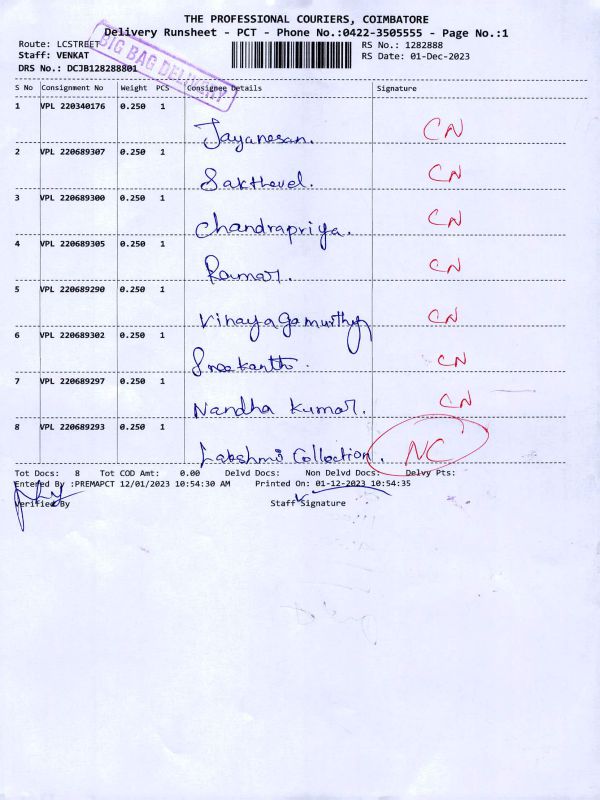 THE PROFESSIONAL COURIERS, COIMBATORE
Delivery Runsheet - PCT - Phone No.:0422-3505555 - Page No.:1
Route: LCSTREET RS No.: 1282888
Staff: VENKAT RS Date: 01-Dec-2023
DRS No.: DCJB128288801
BIG BAG DELIVERY
S No Consignment No Weight PCS Consignee Details Signature
1 VPL 220340176 0.250 1
Jayanesan. CN
2 VPL 220689307 0.250 1
Sakthevel. CN
3 VPL 220689300 0.250 1
Chandrapriya. CN
4 VPL 220689305 0.250 1
Ramar. CN
5 VPL 220689290 0.250 1
Vinayagamurthy CN
6 VPL 220689302 0.250 1
Sreekanth. CN
7 VPL 220689297 0.250 1
Nandha Kumar. CN
8 VPL 220689293 0.250 1
Lakshmi Collection. NC
Tot Docs: 8 Tot COD Amt: 0.00 Delvd Docs: Non Delvd Docs: Delvy Pts:
Entered By :PREMAPCT 12/01/2023 10:54:30 AM Printed On: 01-12-2023 10:54:35
Verified By Staff Signature